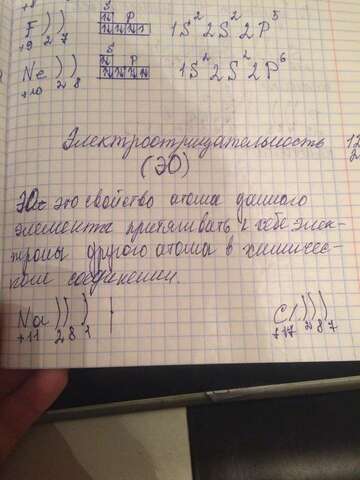 S
F ) ) S P 1S² 2S² 2P⁵
+9 2 7
S
Ne ) ) P 1S² 2S² 2P⁶
+10 2 8
Электроотрицательность
(ЭО)
ЭО - это свойство атома данного
элемента притягивать к себе элек-
троны другого атома в химичес-
ком соединении.
Na ) ) ) Cl ) ) )
+11 2 8 1 +17 2 8 7